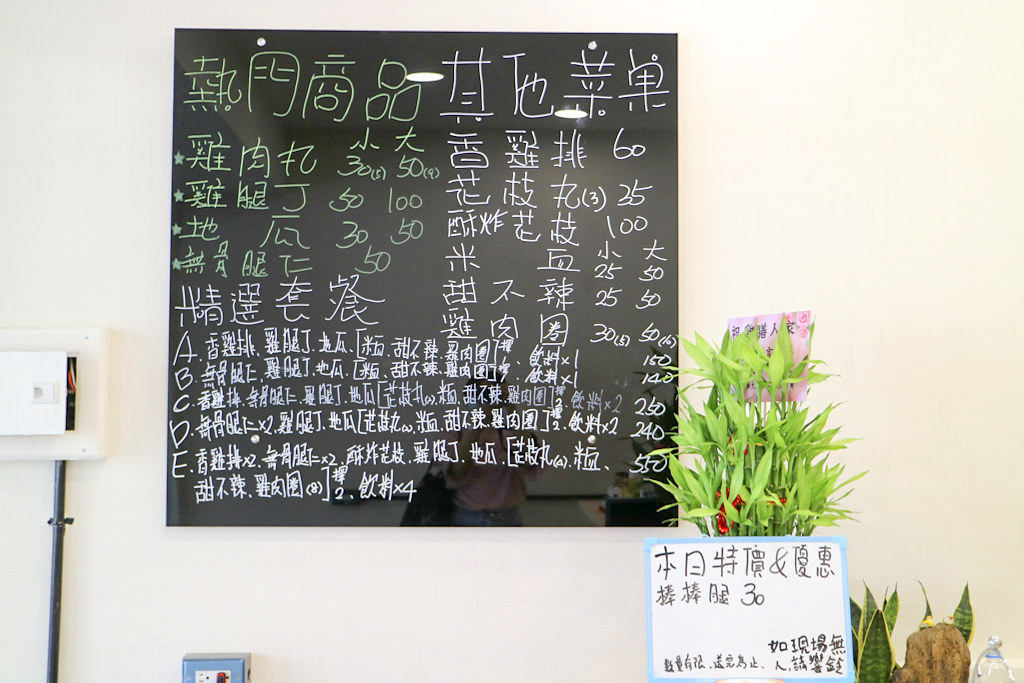 熱門商品
小 大
★雞肉丸 30(5) 50(9)
★雞腿丁 50 100
★地瓜 30 50
★無骨腿仁 50
其他菜單
香雞排 60
花枝丸(3) 35
酥炸花枝 100
小 大
米血 25 50
甜不辣 25 50
雞肉圈 30(5) 50(10)
精選套餐
A. 香雞排、雞腿丁、地瓜、[米血、甜不辣、雞肉圈]擇1、飲料×1 150
B. 無骨腿仁、雞腿丁、地瓜、[米血、甜不辣、雞肉圈]擇1、飲料×1 140
C. 香雞排、無骨腿仁、雞腿丁、地瓜[花枝丸(2)、米血、甜不辣、雞肉圈]擇2、飲料×2 250
D. 無骨腿仁×2、雞腿丁、地瓜[花枝丸(2)、米血、甜不辣、雞肉圈]擇2、飲料×2 240
E. 香雞排×2、無骨腿仁×2、酥炸花枝、雞腿丁、地瓜、[花枝丸(6)、米血、 550
甜不辣、雞肉圈(8)]擇2、飲料×4
本日特價&優惠
棒棒腿 30
如現場無
數量有限、送完為止、人,請響鈴